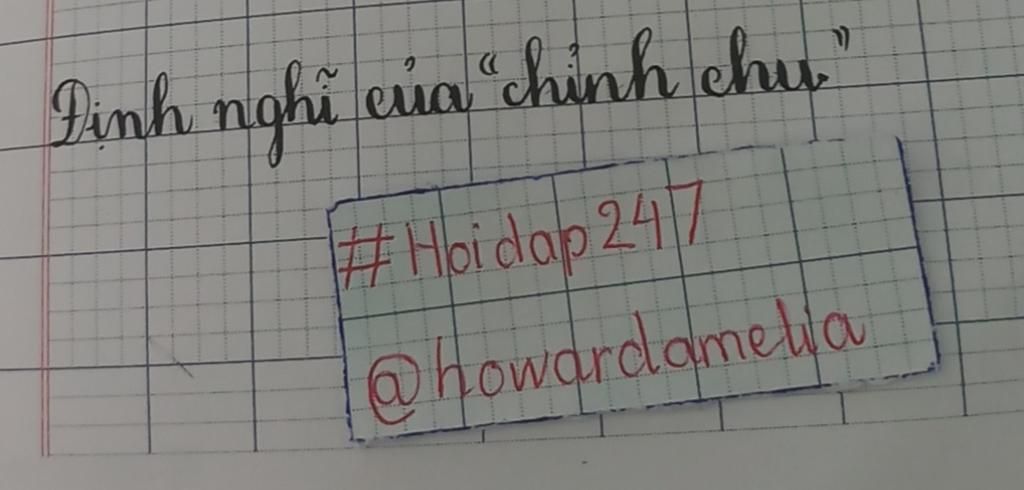 Định nghĩ của “chỉnh chu.”
#Hoidap247
@howardamelia